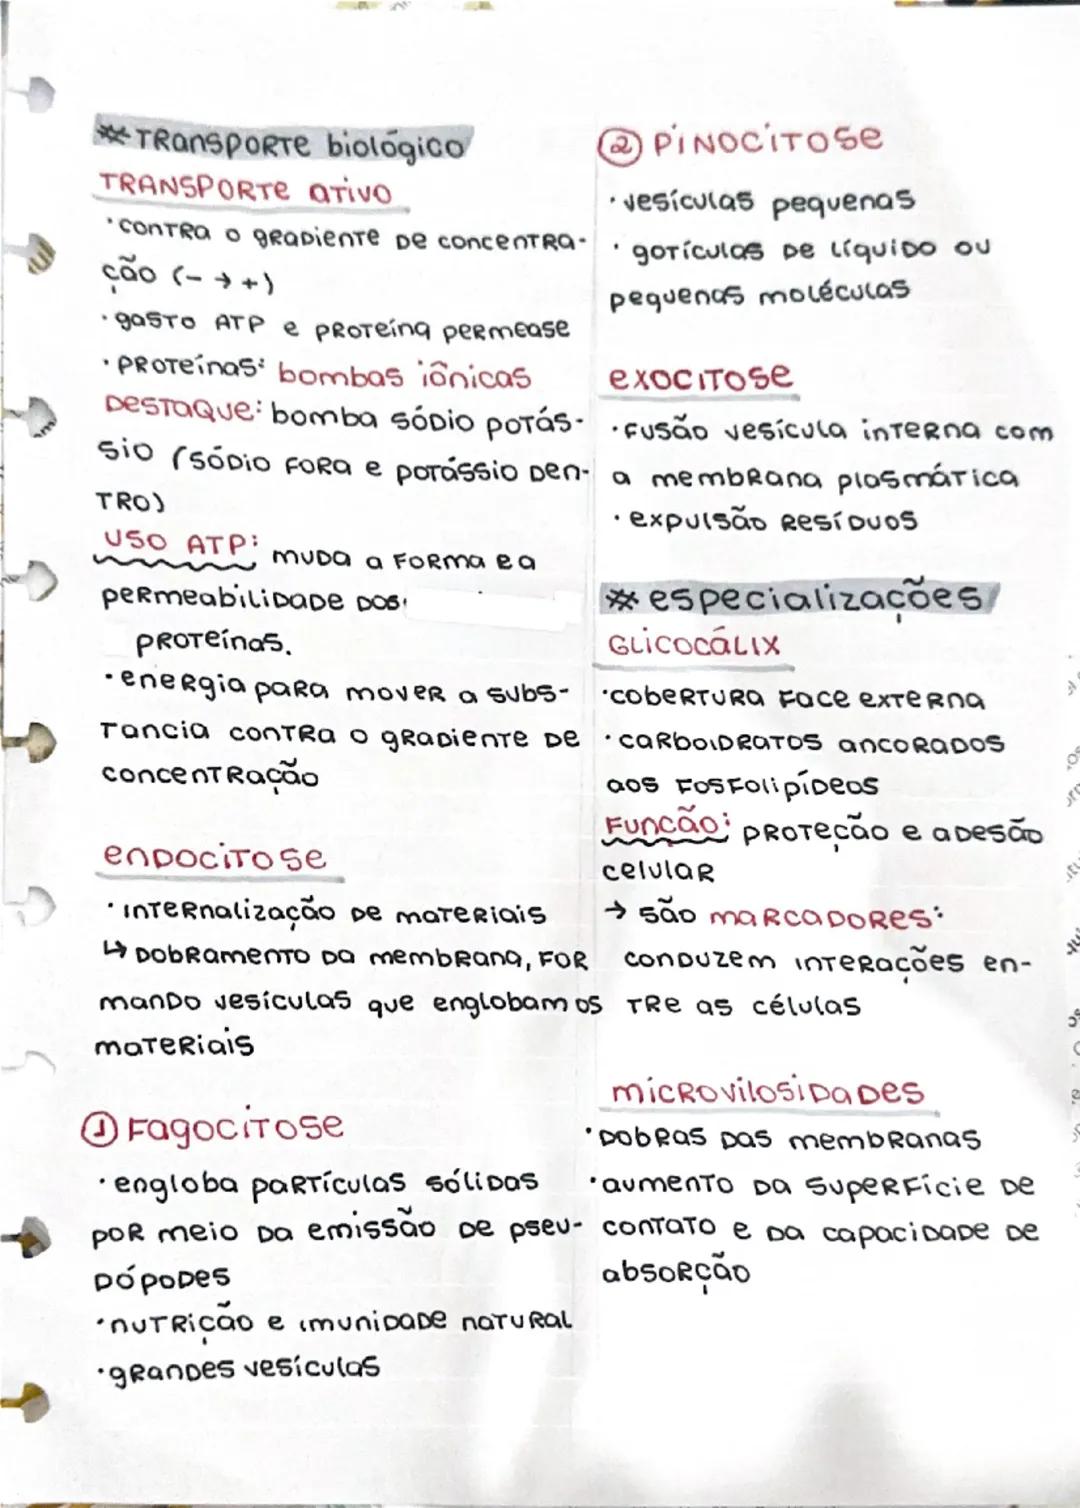 * TRANSPORTE biológico
TRANSPORTE ATIVO
· CONTRA O gRADIENTE DE CONCENTRA-
ção (- → +)
· gasto ATP e PROTEÍNA PERMEASE
· PROTEÍNAS: bombas iônicas
DESTAQUE: bomba SÓDIO POTÁS-
SIO (SÓDIO FORA e POTÁSSIO DEN-
TRO)
USO ATP: MUDA a FORMA e a
PERMEABILIDADE DOS
PROTEÍNAS.
· ENERGIA PARA MOVER a SUBS-
TANCIA CONTRA O gRADIENTE DE
CONCENTRAÇÃO
ENDOCITOSE
· INTERNALIZAÇÃO DE MATERIAIS
↳ DOBRAMENTO DA MEMBRANA, FOR
MANDO VESÍCULAS que englobam os
MATERIAIS
① FAGOCITOSE
· engloba PARTÍCULAS SÓLIDAS
POR MEIO DA EMISSÃO DE PSEU-
DÓPODES
· NUTRIÇÃO e IMUNIDADE NATURAL
· gRANDES VESÍCULAS
② PINOCITOSE
· VESÍCULAS PEQUENAS
· gotículas DE LÍQUIDO OU
PEQUENAS MOLÉCULAS
EXOCITOSE
· FUSÃO VESÍCULA INTERNA COM
a MEMBRANA PLASMÁTICA
· EXPULSÃO RESÍDUOS
* especializações
GLICOCÁLIX
· COBERTURA FACE EXTERNA
· CARBOIDRATOS ANCORADOS
aos FOSFOLIPÍDEOS
FUNÇÃO: PROTEÇÃO e ADESÃO
CELULAR
→ SÃO MARCADORES:
CONDUZEM INTERAÇÕES EN-
TRE as células
MICROVILOSIDADES
· DOBRAS DAS MEMBRANAS
· AUMENTO DA SUPERFÍCIE DE
CONTATO e DA CAPACIDADE DE
ABSORÇÃO